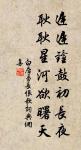 遲遲鐘鼓初長夜
耿耿星河欲曙天
白居易長恨歌詞典網